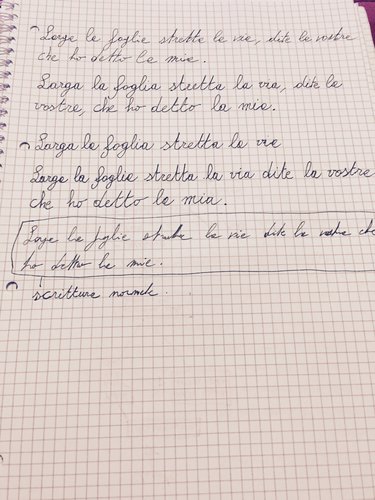 Large le foglie strette le vie, dite le vostre
che ho detto le mie.
Larga la foglia stretta la via, dite la
vostra, che ho detto la mia.
Larga la foglia stretta la via
Larga la foglia stretta la via dite la vostra
che ho detto la mia.
Large le foglie strette le vie dite le vostre che
ho detto le mie.
scrittura normale